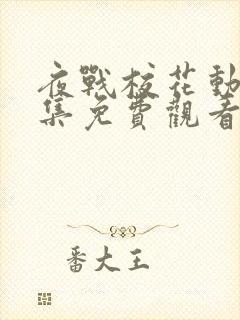 夜戰校花動
集免費觀看
番大王